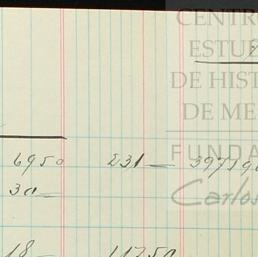 CENTRO
ESTU
DE HIST
DE ME
FUNDA
Carlos
6950 231— 39719
30—
18— 11750